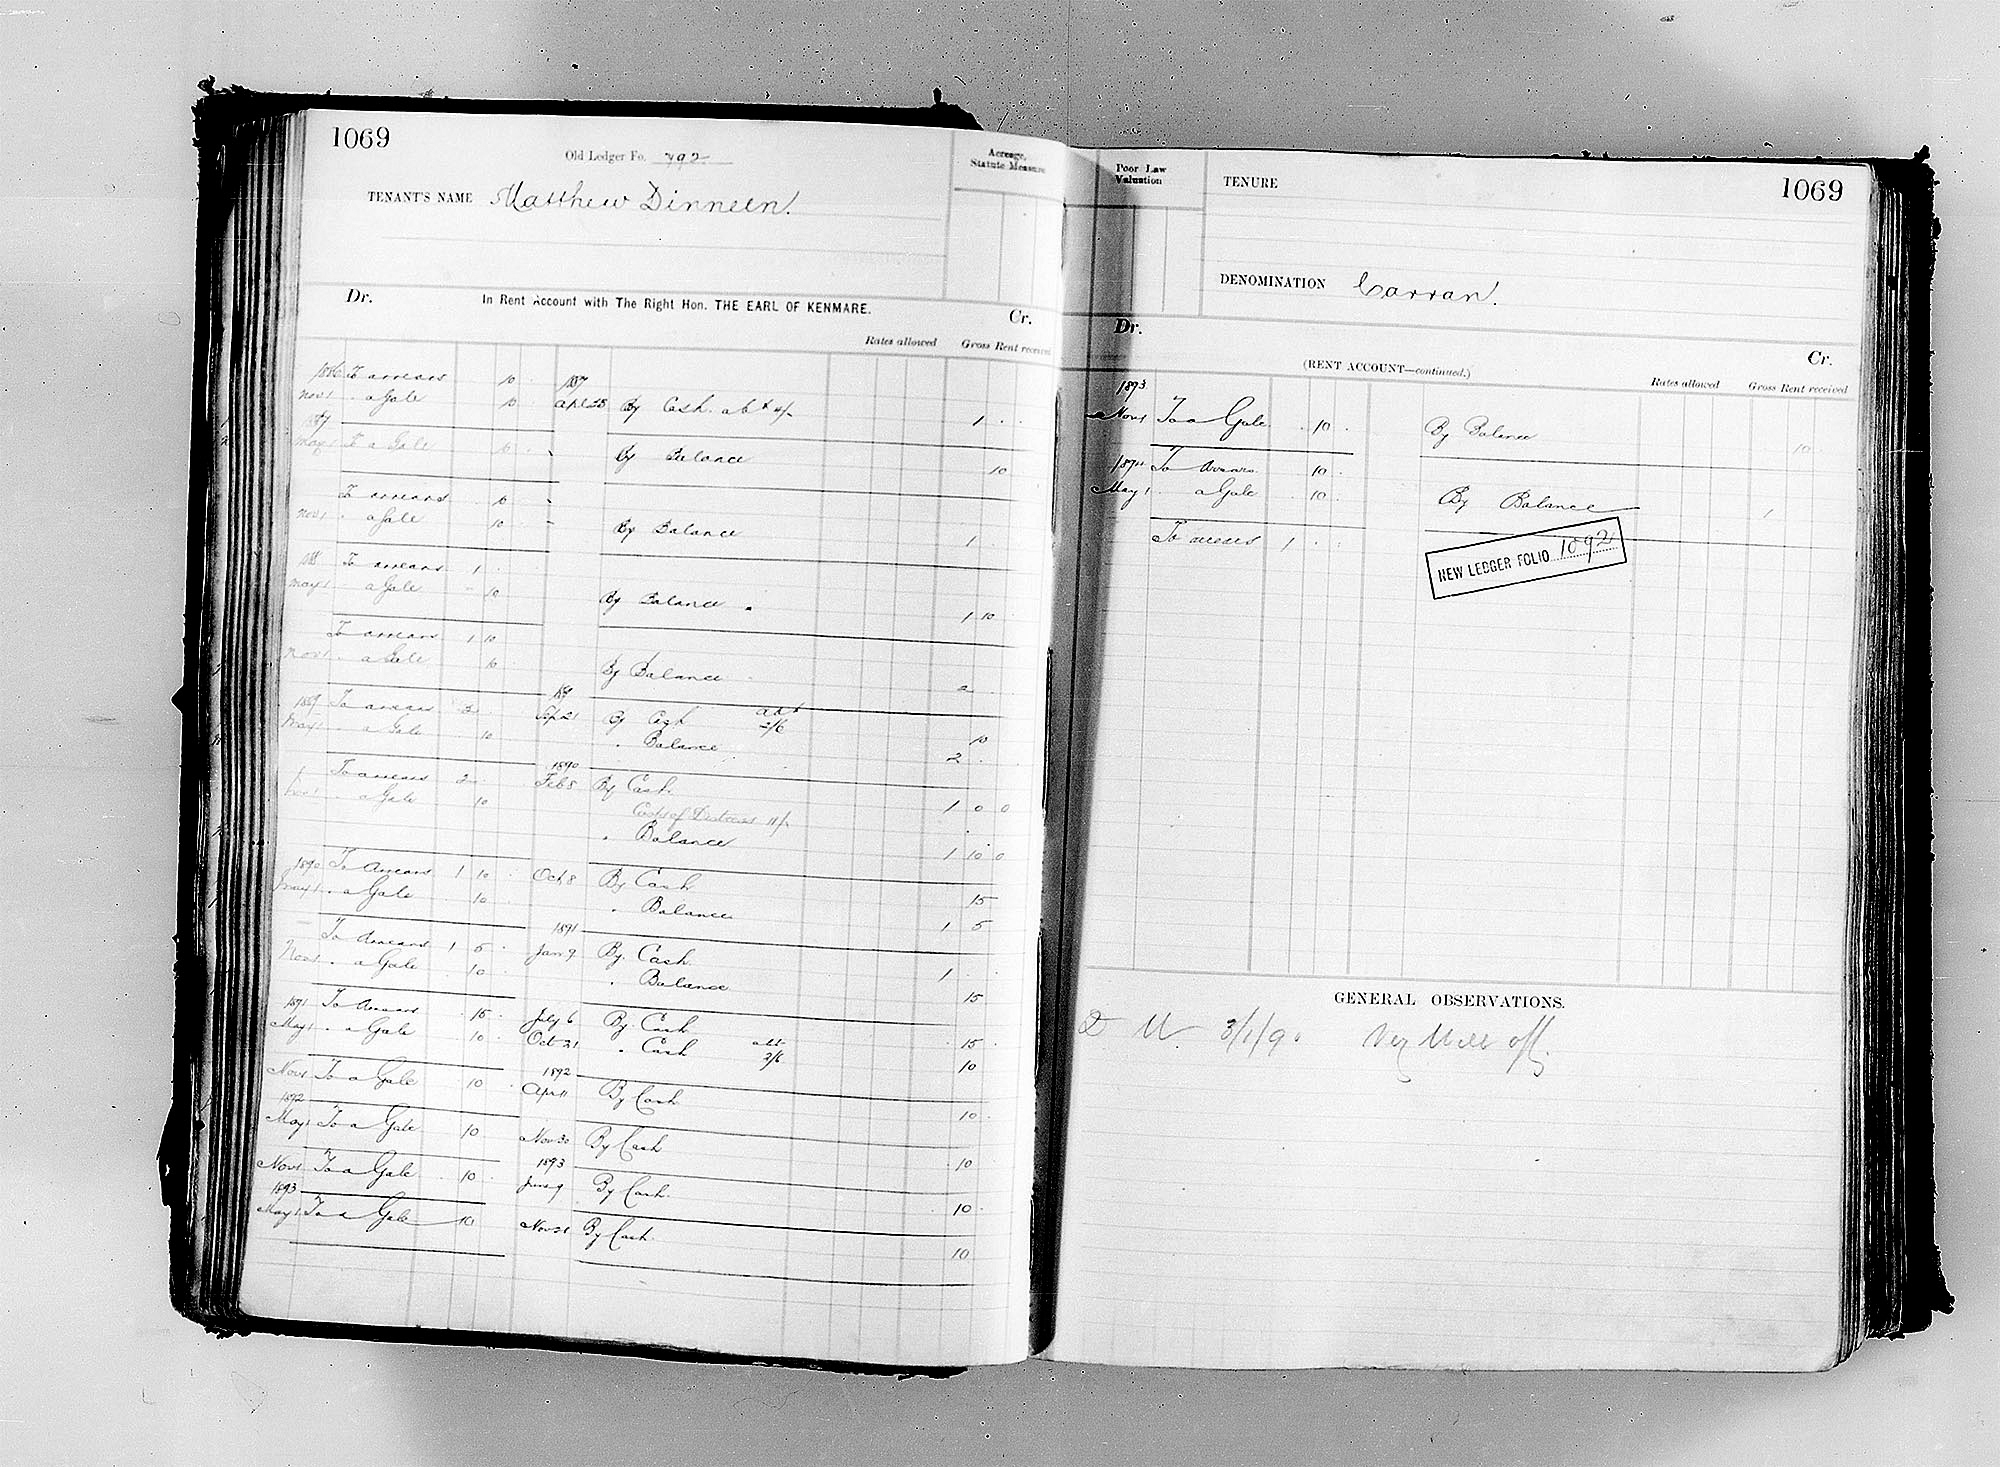 1069
Old Ledger Fo. 792
Acreage, Statute Measure
TENANT'S NAME Matthew Dinneen.
Dr. In Rent Account with The Right Hon. THE EARL OF KENMARE. Cr.
Rates allowed Gross Rent received
1886 To arrears 10 1887
Nov 1 " a Gale 10 Apl 28 By Cash abt 4/- 1
1887
May 1 To a Gale 10 By Balance 10
To arrears 10
Nov 1 " a Gale 10 By Balance 1
188 To arrears 1
May 1 " a Gale 10 By Balance 1 10
To arrears 1 10
Nov 1 " a Gale 10 By Balance 2
1889 To arrears 2 1889 Sep 21 By Cash abt 2/6 10
May 1 " a Gale 10 " Balance 2
1890
To arrears 2 Feb 8 By Cash 1 0 0
Nov 1 " a Gale 10 Costs of Distress 11/-
" Balance 1 10 0
1890 To Arrears 1 10 Oct 8 By Cash 15
May 1 " a Gale 10 " Balance 1 5
1891
To Arrears 1 5 Jan 9 By Cash 1
Nov 1 " a Gale 10 " Balance 15
1891 To Arrears 15 July 6 By Cash 15
May 1 " a Gale 10 Oct 21 " Cash abt 2/6 10
1892
Nov 1 To a Gale 10 Apr 11 By Cash 10
1892
May 1 To a Gale 10 Nov 30 By Cash 10
1893
Nov 1 To a Gale 10 June 9 By Cash 10
1893
May 1 To a Gale 10 Nov 21 By Cash 10
Poor Law Valuation
TENURE
1069
DENOMINATION Carran.
Dr. (RENT ACCOUNT—continued.) Cr.
Rates allowed Gross Rent received
1893
Nov 1 To a Gale 10 By Balance 10
1894 To Arrears 10
May 1 a Gale 10 By Balance 1
To arrears 1
NEW LEDGER FOLIO 1092
GENERAL OBSERVATIONS.
3/1/90
off.